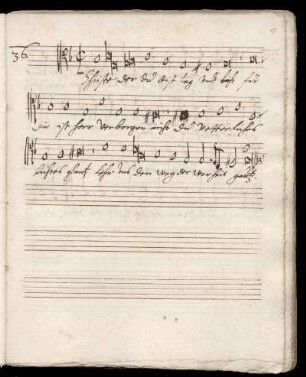 36
Christe der du bist tag und liecht für
dir ist herr verborgen nicht du vetterliches
liechtes glantz lehr uns den weg der warheit gantz